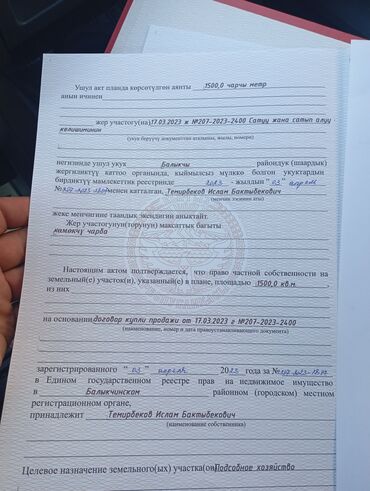 Ушул акт планда көрсөтүлгөн аянты 1500,0 чарчы метр
анын ичинен
жер участогу(на) 17.03.2023 ж №207-2023-2400 Сатуу жана сатып алуу
келишиминин
(укук берүүчү документтин аталышы, жылы, номери)
негизинде ушул укук Балыкчы райондук (шаардык)
жергиликтүү каттоо органында, кыймылсыз мүлккө болгон укуктардын
бирдиктүү мамлекеттик реестринде 2023 - жылдын "03" апрель
менен катталган, Темирбеков Ислам Бактыбекович
(менчик ээсинин аты)
жеке менчигине таандык экендигин аныктайт.
Жер участогунун(торунун) максаттык багыты
көмөкчү чарба
Настоящим актом подтверждается, что право частной собственности на
земельный(е) участок(и), указанный(е) в плане, площадью 1500,0 кв.м.
из них
на основании договор купли продажи от 17.03.2023 г №207-2023-2400
(наименование, номер и дата правоустанавливающего документа)
зарегистрированного "03" апреля 2023 года за №
в Едином государственном реестре прав на недвижимое имущество
в Балыкчинском районном (городском) местном
регистрационном органе,
принадлежит Темирбеков Ислам Бактыбекович
(наименование собственника)
Целевое назначение земельного(ых) участка(ов) Подсобное хозяйство